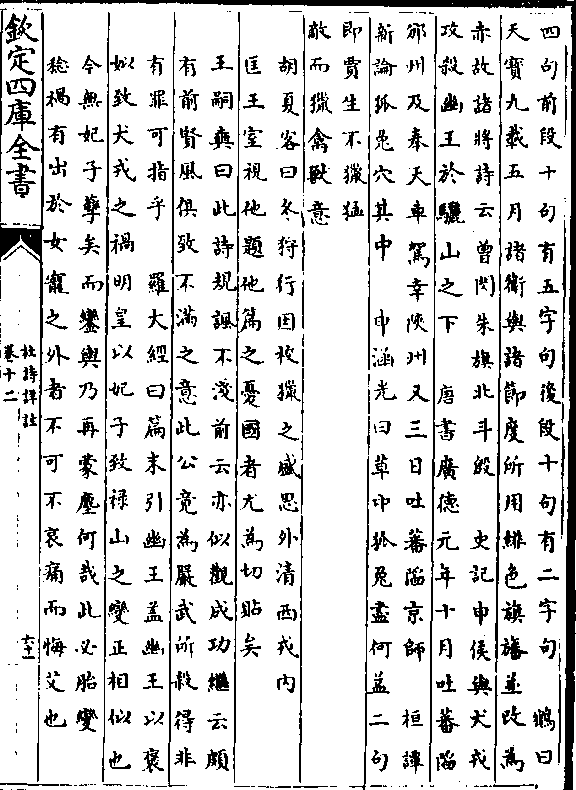 四句前段十句有五字句後段十句有二字句　鶴曰
天寶九載五月諸衛與諸節度所用緋色旗旛並改為
赤故諸將詩云曾閃朱旗北斗殷　史記申侯與犬戎
攻殺幽王於驪山之下　唐書廣德元年十月吐蕃陷
邠州及奉天車駕幸陜州又三日吐蕃陷京師　桓譚
新論狐兎穴其中　申涵光曰草中狐兎盡何益二句
即賈生不獵猛
敵而獵禽獸意
胡夏客曰冬狩行因校獵之盛思外清西戎内
匡王室視他題他篇之憂國者尤為切貼矣
王嗣奭曰此詩規諷不淺前云亦似觀成功繼云頗
有前賢風俱致不滿之意此公竟為嚴武所殺得非
有罪可指乎　羅大經曰篇末引幽王盖幽王以褒
姒致犬戎之禍明皇以妃子致禄山之變正相似也
今無妃子孽矣而鑾輿乃再蒙塵何哉此必胎變
稔禍有出於女寵之外者不可不哀痛而悔艾也
欽定四庫全書
杜詩詳註
卷十二
六十一